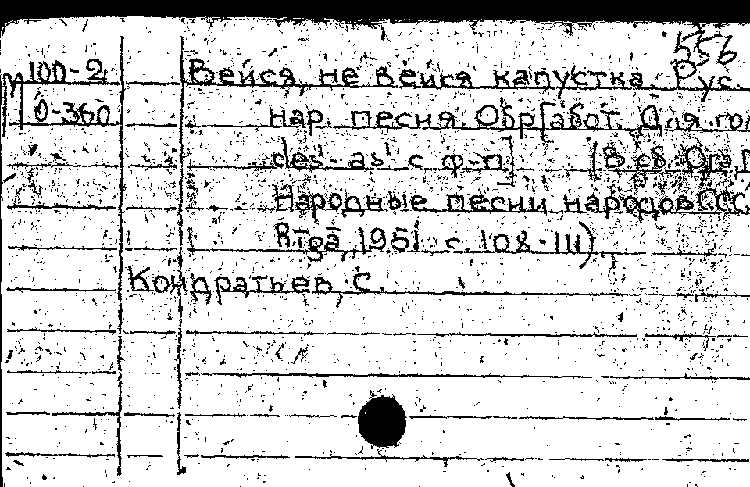 556
M 100-2 Вейся, не вейся капустка. Рус.
0-360 нар. песня. Обр[абот. Для гол
des'-as' с ф-п] (В сб.
Народные песни народов ССС
Rīgā, 1951. с. 108-111)
Кондратьев, С.